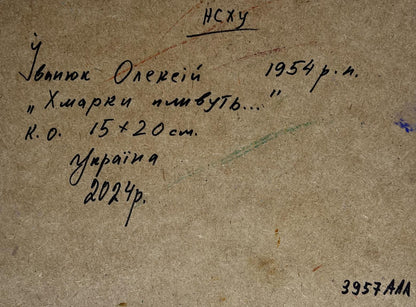 НСХУ
Іванюк Олексій 1954 р.н.
„Хмарки пливуть..."
к.о. 15×20 см.
Україна
2024р.
3957АЛЛ